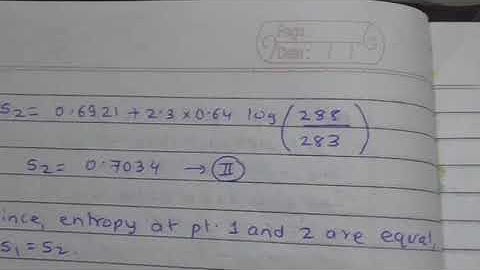 Page:
Date: / /
S2 = 0.6921 + 2.3 × 0.64 log (288/283)
S2 = 0.7034 → II
ince, entropy at pt. 1 and 2 are equal,
S1 = S2.